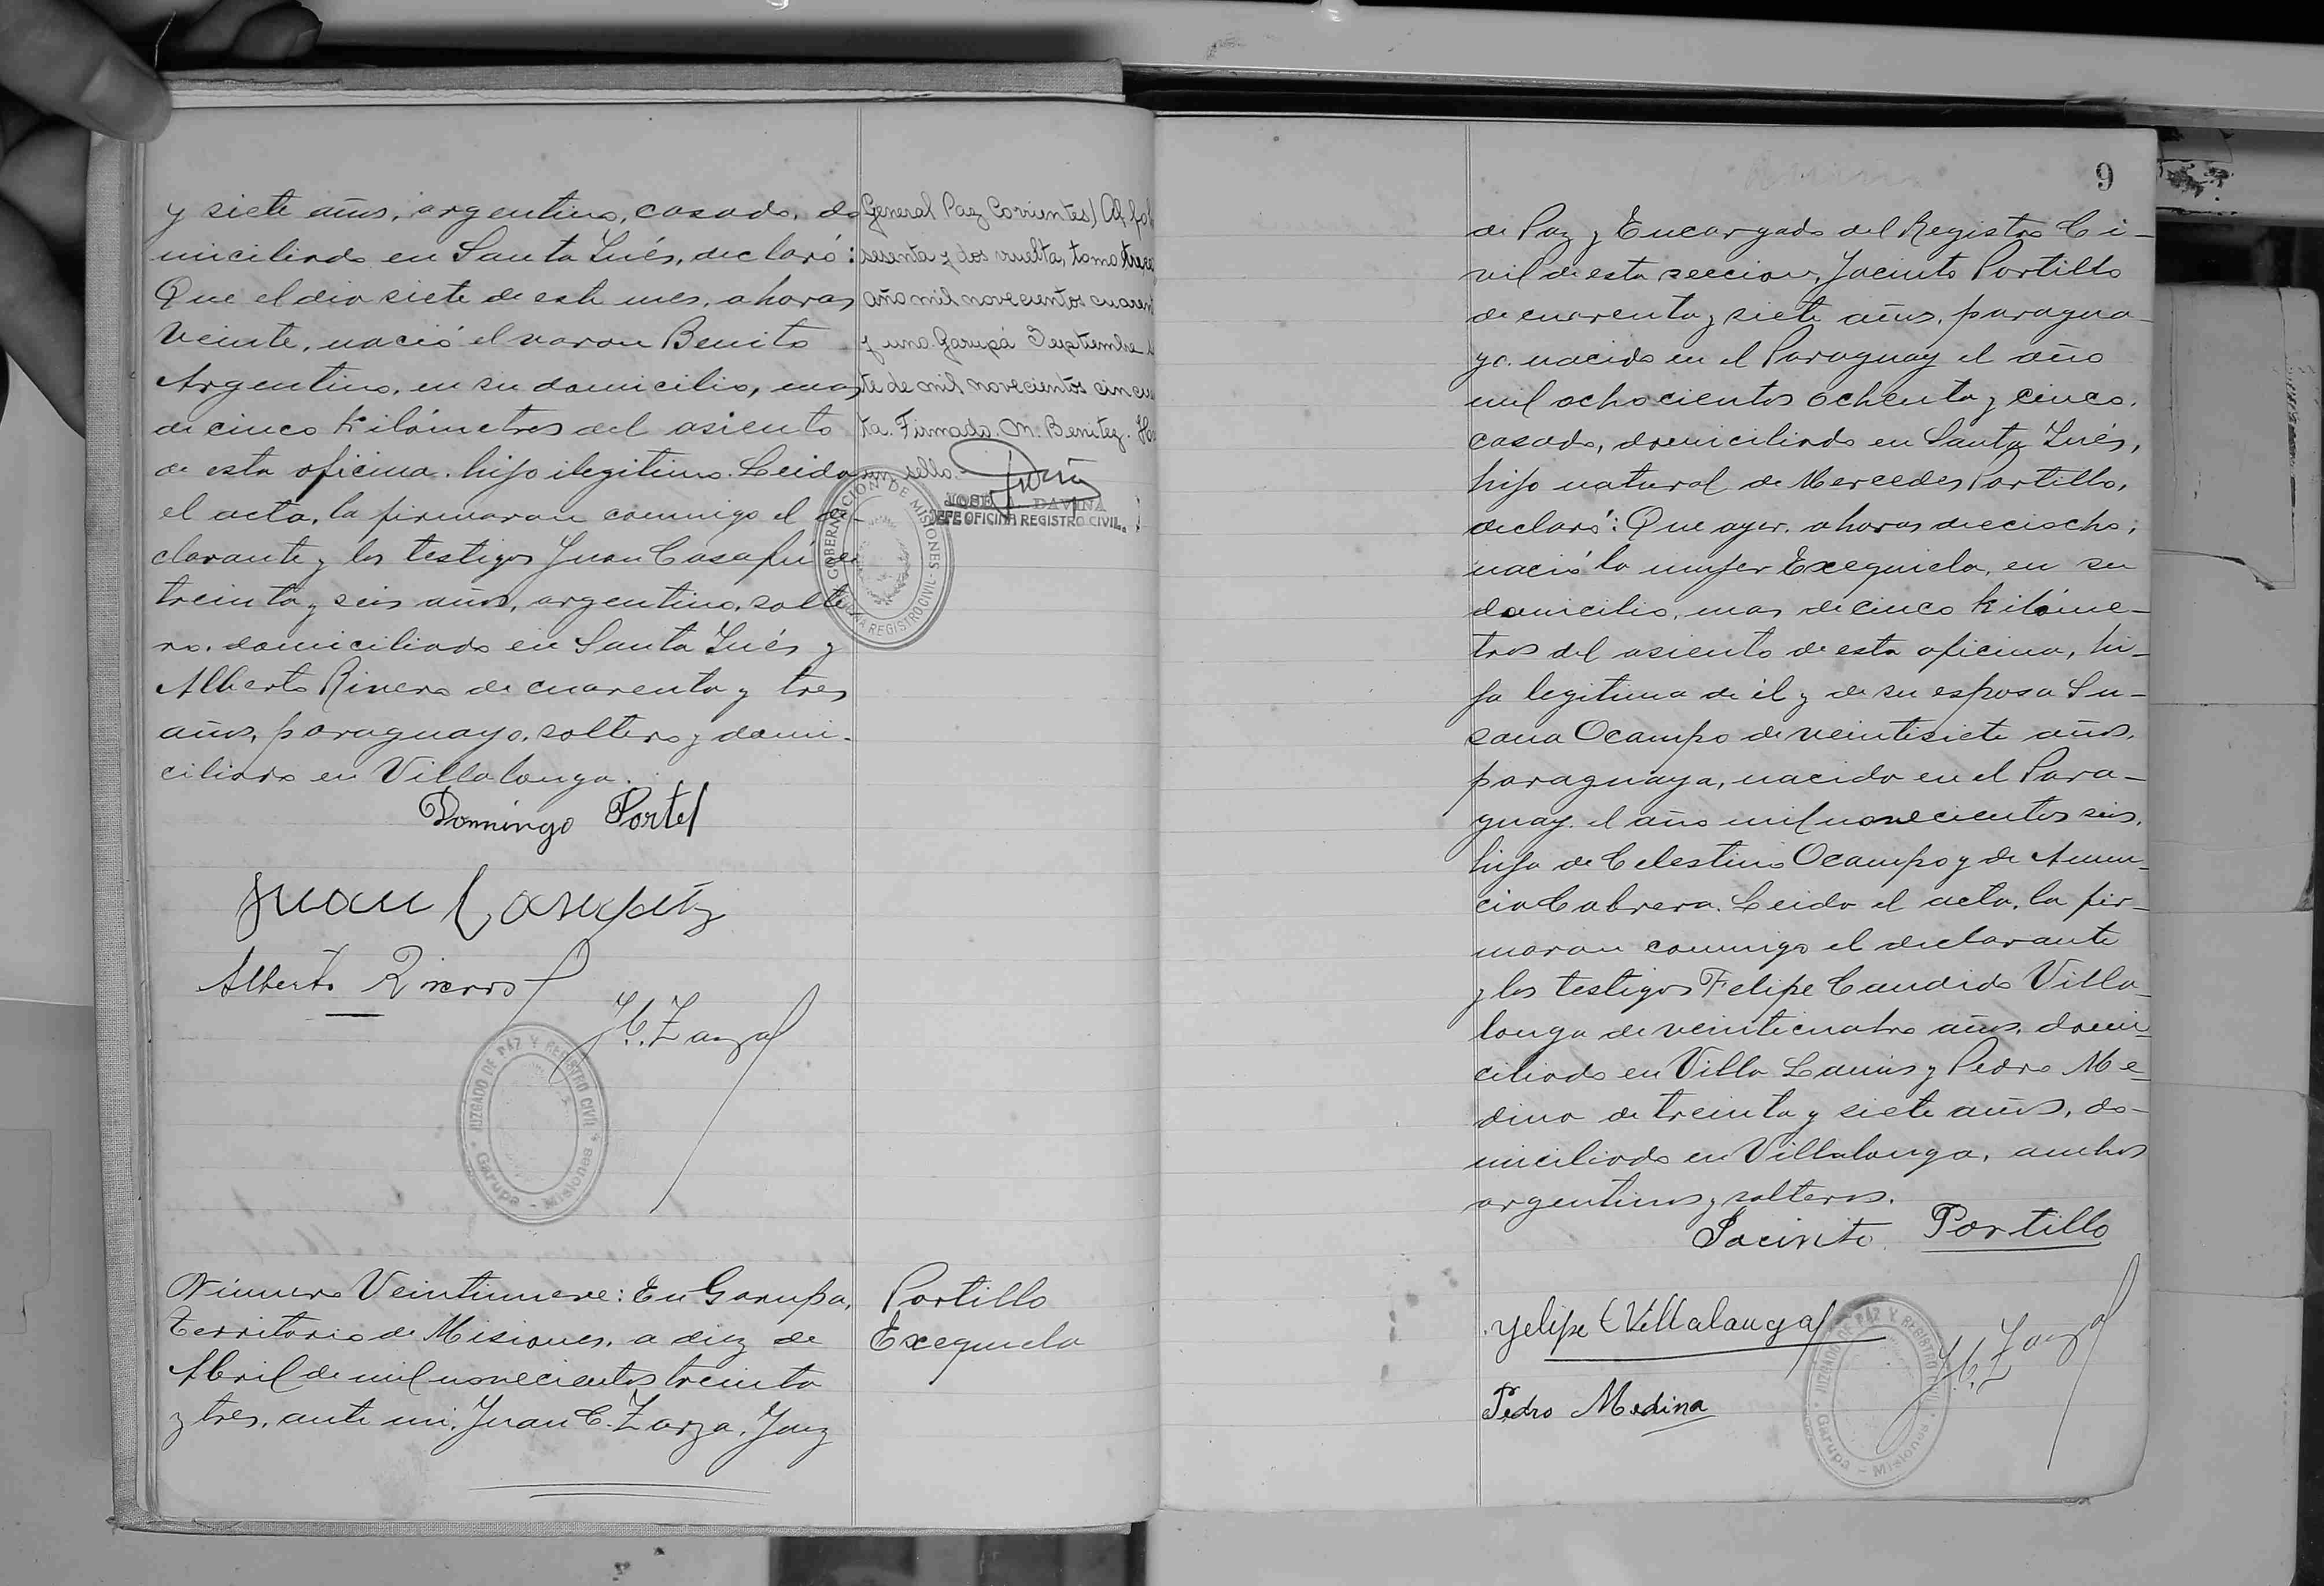 y siete años, argentino, casado, do
miciliado en Santa Inés, declaró:
Que el dia siete de este mes, a horas
veinte, nació el varon Benito
Argentino, en su domicilio, mas
de cinco kilómetros del asiento
de esta oficina. hijo ilegitimo. Leida
el acta, la firmaron conmigo el de-
clarante y los testigos Juan Casafú de
treinta y seis años, argentino, solte
ro, domiciliado en Santa Inés y
Alberto Rivero de cuarenta y tres
años, paraguayo, soltero y domi-
ciliado en Villalonga.
Domingo Portel
Juan
Alberto Riveros
J.C. Zarza
JUZGADO DE PAZ Y REGISTRO CIVIL
Garupa - Misiones
General Paz Corrientes) Al fol
sesenta y dos vuelta, tomo trece
año mil novecientos cuaren
y uno. Garupá Septiembre
te de mil novecientos cincuen
ta. Firmado. M. Benitez. Ha
un sello.
JOSE DAVIÑA
JEFE OFICINA REGISTRO CIVIL
GOBERNACION DE MISIONES
REGISTRO CIVIL
Número Veintinueve: En Garupa,
Territorio de Misiones, a diez de
Abril de mil novecientos treinta
y tres, ante mi, Juan C. Zarza, Juez
Portillo
Exequiela
9
de Paz y Encargado del Registro Ci-
vil de esta seccion, Jacinto Portillo
de cuarenta y siete años, paragua-
yo. nacido en el Paraguay el año
mil ochocientos ochenta y cinco,
casado, domiciliado en Santa Inés,
hijo natural de Mercedes Portillo,
declaró: Que ayer, a horas dieciocho,
nació la mujer Exequiela, en su
domicilio, mas de cinco kilóme-
tros del asiento de esta oficina, hi-
ja legitima de él y de su esposa Su-
sana Ocampo de veintisiete años,
paraguaya, nacida en el Para-
guay. el año mil novecientos seis,
hija de Celestino Ocampo y de Anun-
cia Cabrera. Leida el acta, la fir-
maron conmigo el declarante
y los testigos Felipe Candido Villa-
longa de veinticuatro años, domi-
ciliado en Villa Lanus y Pedro Me-
dina de treinta y siete años, do-
miciliado en Villalonga, ambos
argentinos y solteros.
Jacinto Portillo
Felipe C Villalonga
Pedro Medina
J.C. Zarza
JUZGADO DE PAZ Y REGISTRO CIVIL
Garupa - Misiones